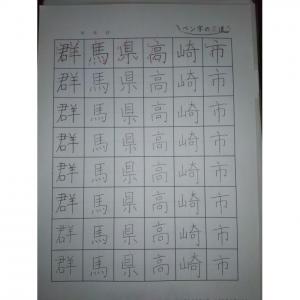 ペン字の三法
群馬県高崎市
群馬県高崎市
群馬県高崎市
群馬県高崎市
群馬県高崎市
群馬県高崎市
群馬県高崎市
群馬県高崎市